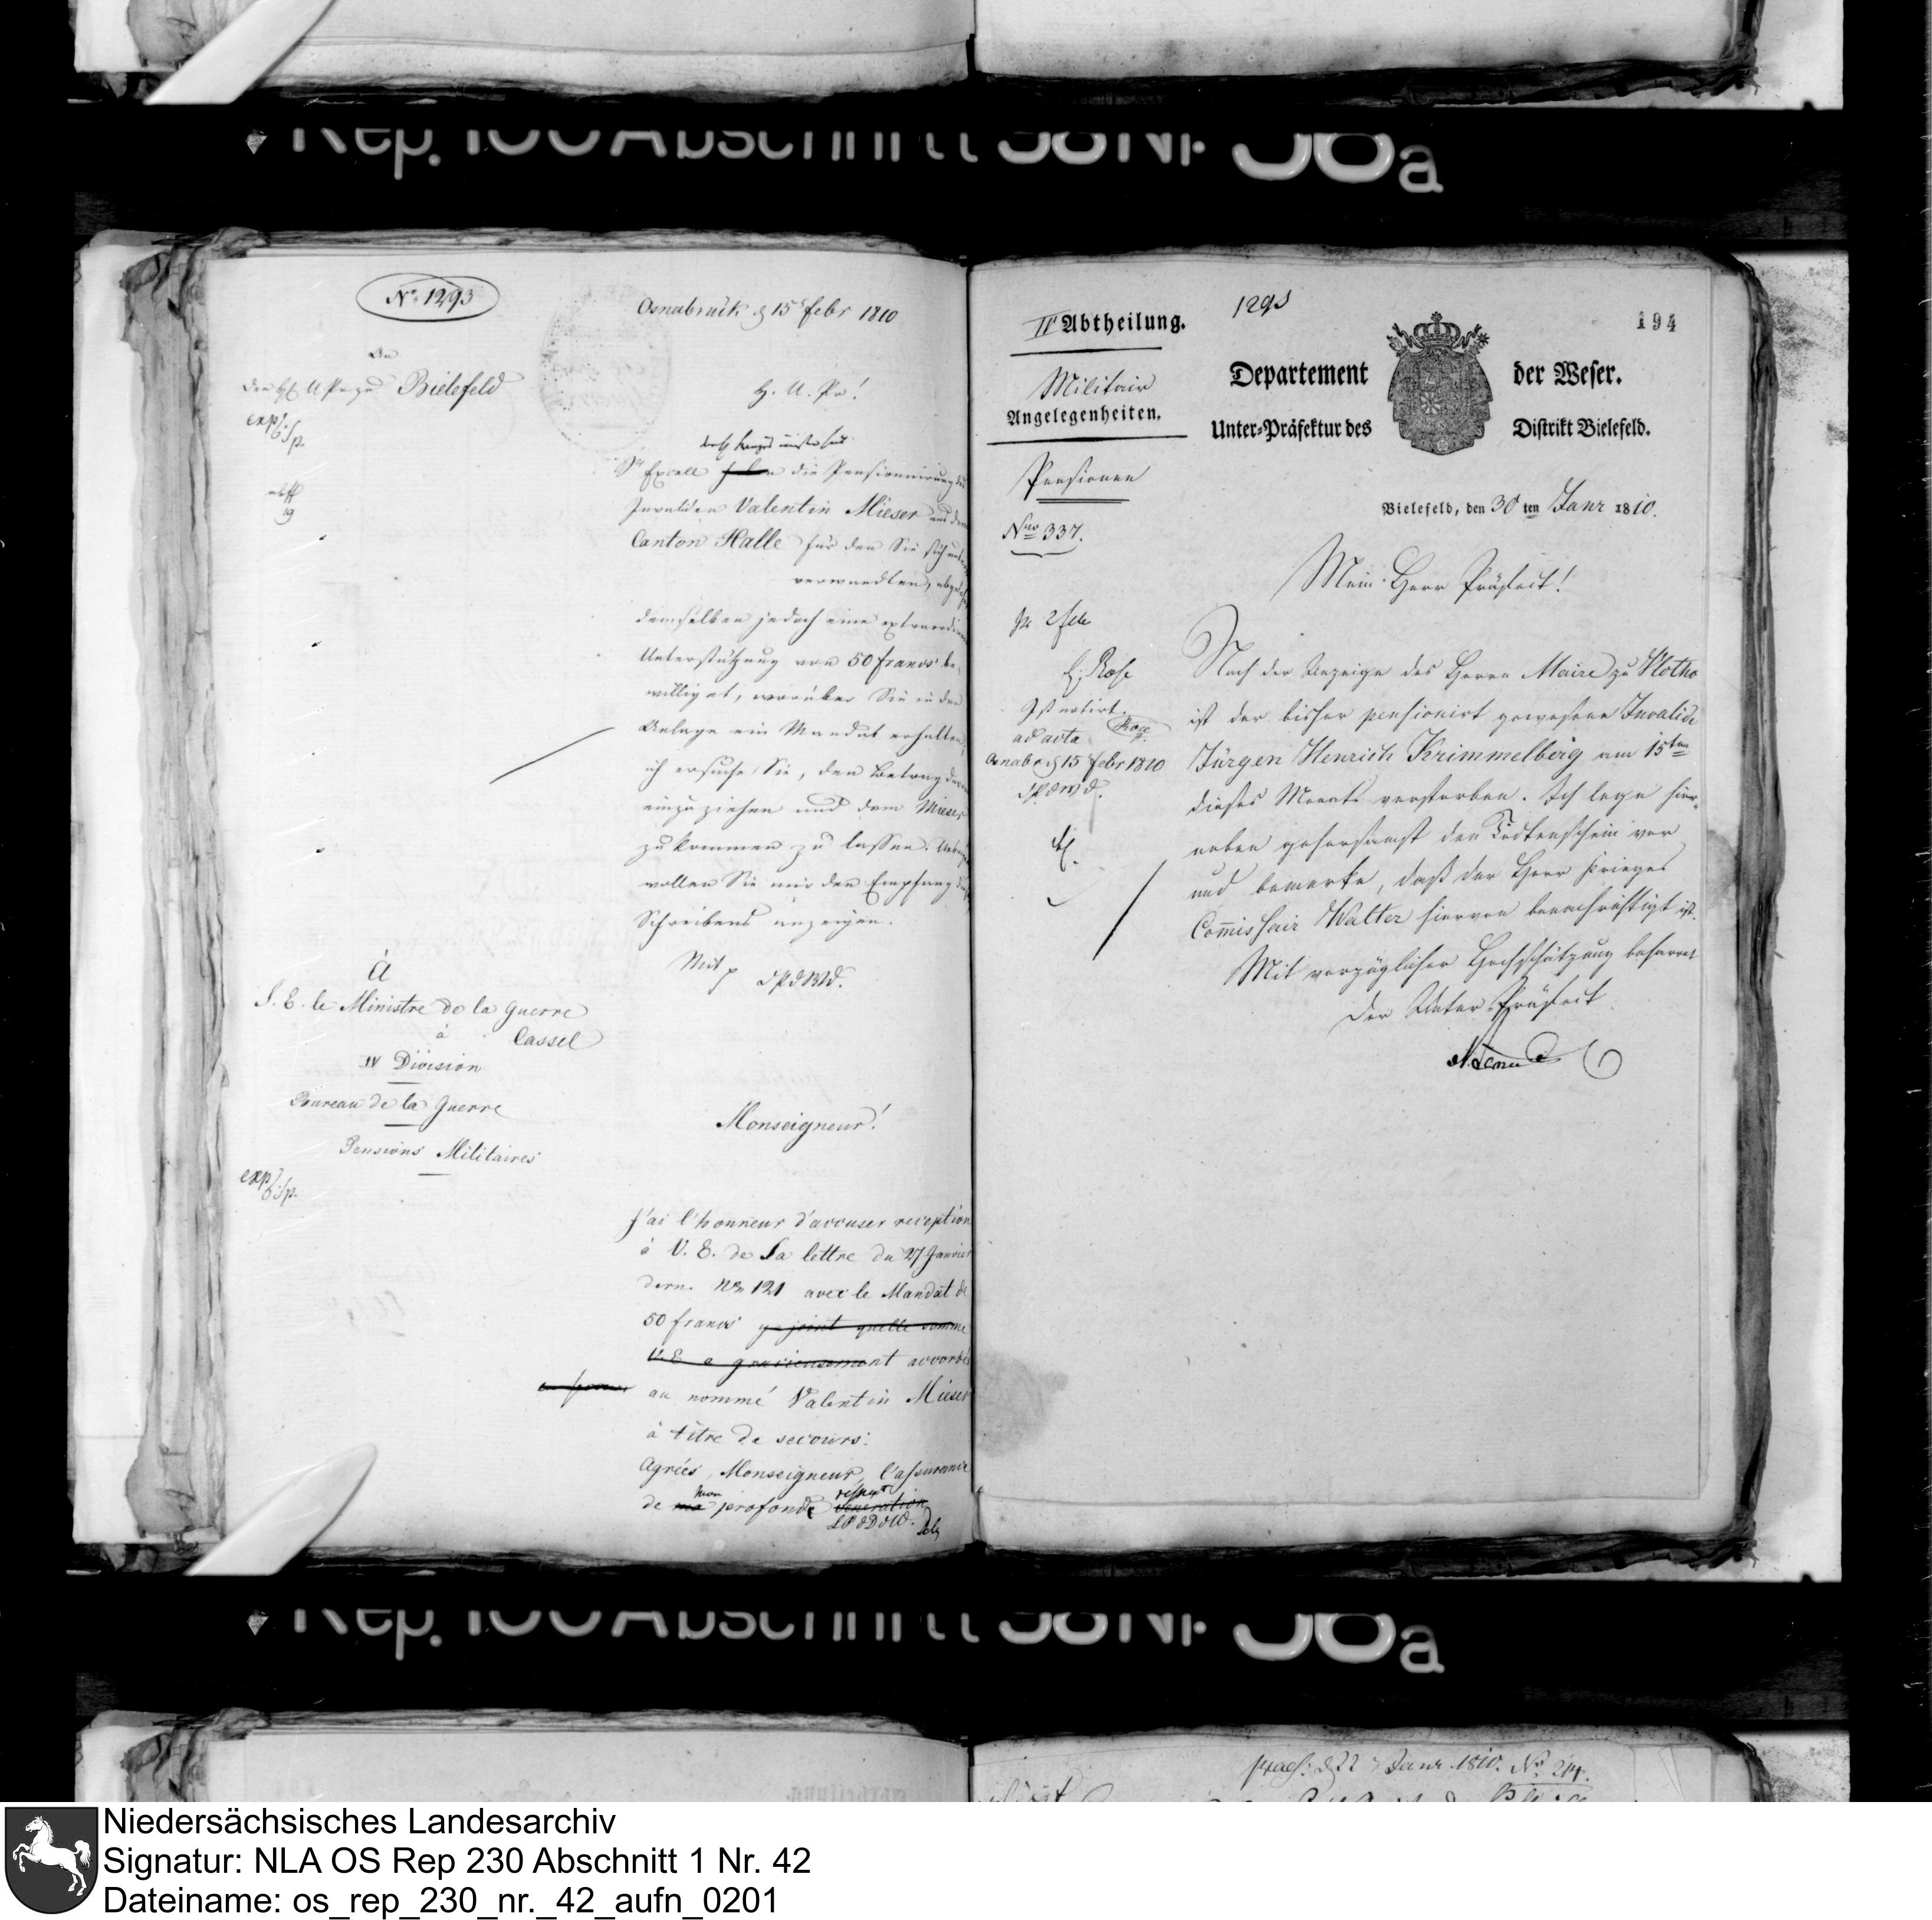 Rep. 100 Abschnitt 38 Nr. 36a
No. 1293
Osnabrück d 15 Febr 1810
An
den H. U. Pr. zu Bielefeld
H. U. Pr!
exp.
Sr Excell die Pensionnirung des
Invaliden Valentin Mieser aus dem
Canton Halle für den Sie sich
verwandten,
demselben jedoch eine
Unterstützung von 50 francs be-
willigt, worüber Sie in der
Anlage ein Mandat erhalten,
ich ersuche Sie, den Betrag
einzuziehen und dem Mieser
zukommen zu lassen.
wollen Sie mir den Empfang
Schreibens anzeigen.
Mit
à
S. E. le Ministre de la Guerre
à Cassel
IV Division
Bureau de la Guerre
Pensions Militaires
exp.
Monseigneur!
J'ai l'honneur d'accuser reception
à V. E. de Sa lettre du 27 Janvier
dern. No 121 avec le Mandat de
50 francs y joint quelle somme
V. E a gracieusement accordé
au nommé Valentin Mieser
à titre de secours.
Agrées, Monseigneur, l'assurance
mon respect
de ma profonde veneration
1293
194
II Abtheilung.
Militair
Angelegenheiten.
Departement der Weser.
Unter-Präfektur des Distrikt Bielefeld.
Pensionen
Nro 337.
Bielefeld, den 30 ten Janr 1810.
Mein Herr Präfect!
Nach der Anzeige des Herrn Maire zu Vlotho
ist der bisher pensionirt gewesene Invalide
Jürgen Henrich Krimmelberg am 15ten
dieses Monats verstorben. Ich lege hier-
neben gehorsamst den Todtenschein vor
und bemerke, daß der Herr Krieges
Commissair Walter hiervon benachrichtigt ist.
Mit vorzüglicher Hochschätzung beharret
der Unter-Präfect
Ist notirt.
ad acta
Osnabr d 15 Febr 1810
Rep. 100 Abschnitt 38 Nr. 36a
praes: d 22 Janr 1810. No 214.
Niedersächsisches Landesarchiv
Signatur: NLA OS Rep 230 Abschnitt 1 Nr. 42
Dateiname: os_rep_230_nr._42_aufn_0201